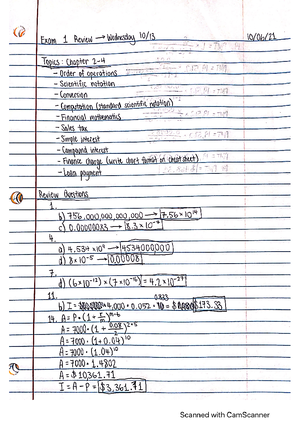 Exam 1 Review → Wednesday 10/13 10/06/21
Topics: Chapter 2-4
- Order of operations
- Scientific notation
- Conversion
- Computation (standard scientific notation)
- Financial mathematics
- Sales tax
- Simple interest
- Compound interest
- Finance charge (write chart format in cheat sheet)
- Loan payment
Review Questions
1.
b) 756,000,000,000,000 → 7.56×10¹⁴
c) 0.00000083 → 8.3×10⁻⁷
4.
a) 4.534×10⁹ → 4534000000
d) 8×10⁻⁵ → 0.00008
7.
d) (6×10⁻¹²)×(7×10⁻¹⁶) = 4.2×10⁻²⁷
11.
0.833
b) I = 4,000 · 0.052 · = $173.33
14. A = P · (1 +
A = 7000 · (1 + 0.08/2)²·⁵
A = 7000 · (1 + 0.04)¹⁰
A = 7000 · (1.04)¹⁰
A = 7000 · 1.4802
A = $10,361.71
I = A - P = $3,361.71
Scanned with CamScanner